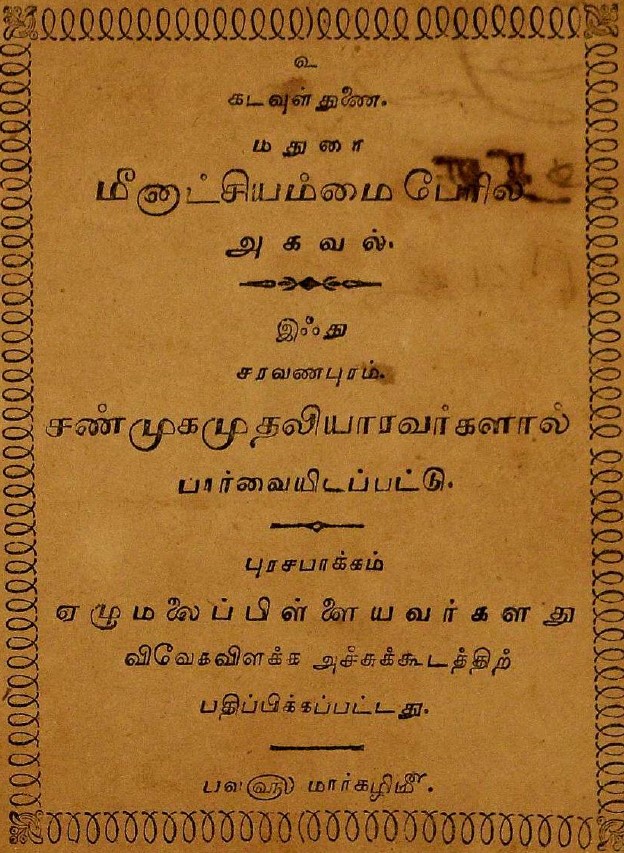 உ
கடவுள் துணை.
மதுரை
மீனாட்சியம்மை பேரில்
அகவல்.
இஃது
சரவணபுரம்.
சண்முகமுதலியாரவர்களால்
பார்வையிடப்பட்டு.
புரசபாக்கம்
ஏழுமலைப்பிள்ளையவர்களது
விவேகவிளக்க அச்சுக்கூடத்திற்
பதிப்பிக்கப்பட்டது.
பவ௵ மார்கழி௴.